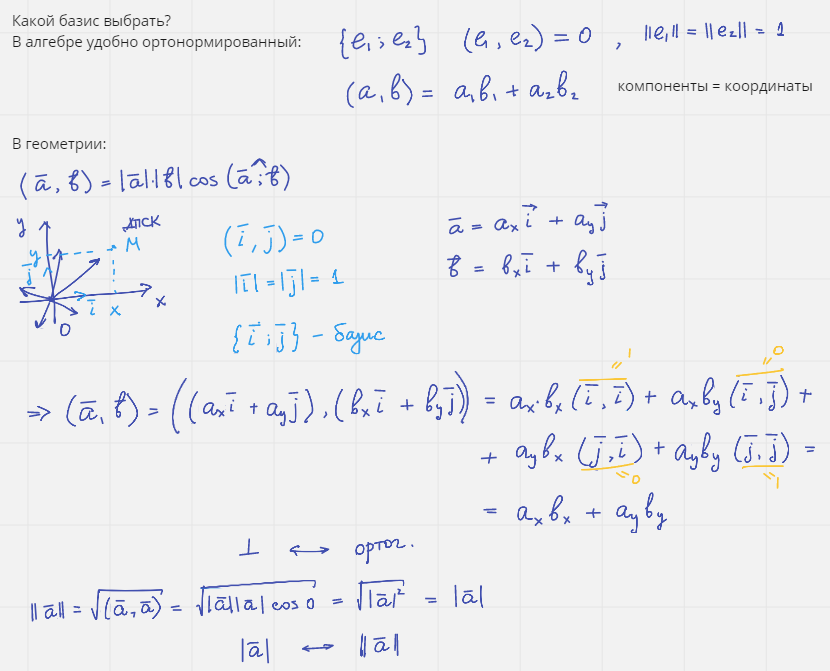 Какой базис выбрать?
В алгебре удобно ортонормированный: {e₁; e₂} (e₁, e₂) = 0 , ||e₁|| = ||e₂|| = 1
(a, b) = a₁b₁ + a₂b₂ компоненты = координаты
В геометрии:
(a̅, b̅) = |a̅|·|b̅| cos (a̅ ;^ b̅)
y ДПСК
y M
j̅
i̅ x x
0
(i̅, j̅) = 0
|i̅| = |j̅| = 1
{i⃗ ; j̅} – базис
a̅ = aₓ i⃗ + a_y j⃗
b̅ = bₓ i̅ + b_y j̅
=> (a̅, b̅) = ((aₓ i̅ + a_y j̅), (bₓ i̅ + b_y j̅)) = aₓ·bₓ (i̅, i̅) + aₓb_y (i̅, j̅) +
= 1 = 0
+ a_y bₓ (j̅, i̅) + a_y b_y (j̅, j̅) =
= 0 = 1
= aₓ bₓ + a_y b_y
⊥ ↔ ортог.
||a̅|| = √(a̅, a̅) = √|a̅||a̅| cos 0 = √|a̅|² = |a̅|
|a̅| ↔ ||a̅||